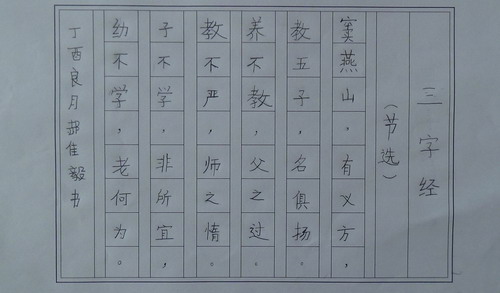 三字经
（节选）
窦燕山，有义方，
教五子，名俱扬。
养不教，父之过。
教不严，师之惰。
子不学，非所宜，
幼不学，老何为。
丁酉良月郝佳毅书